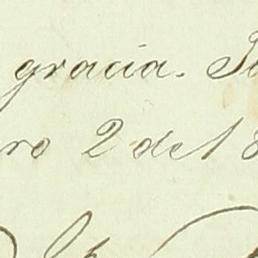 gracia. Sa
ro 2 del 8